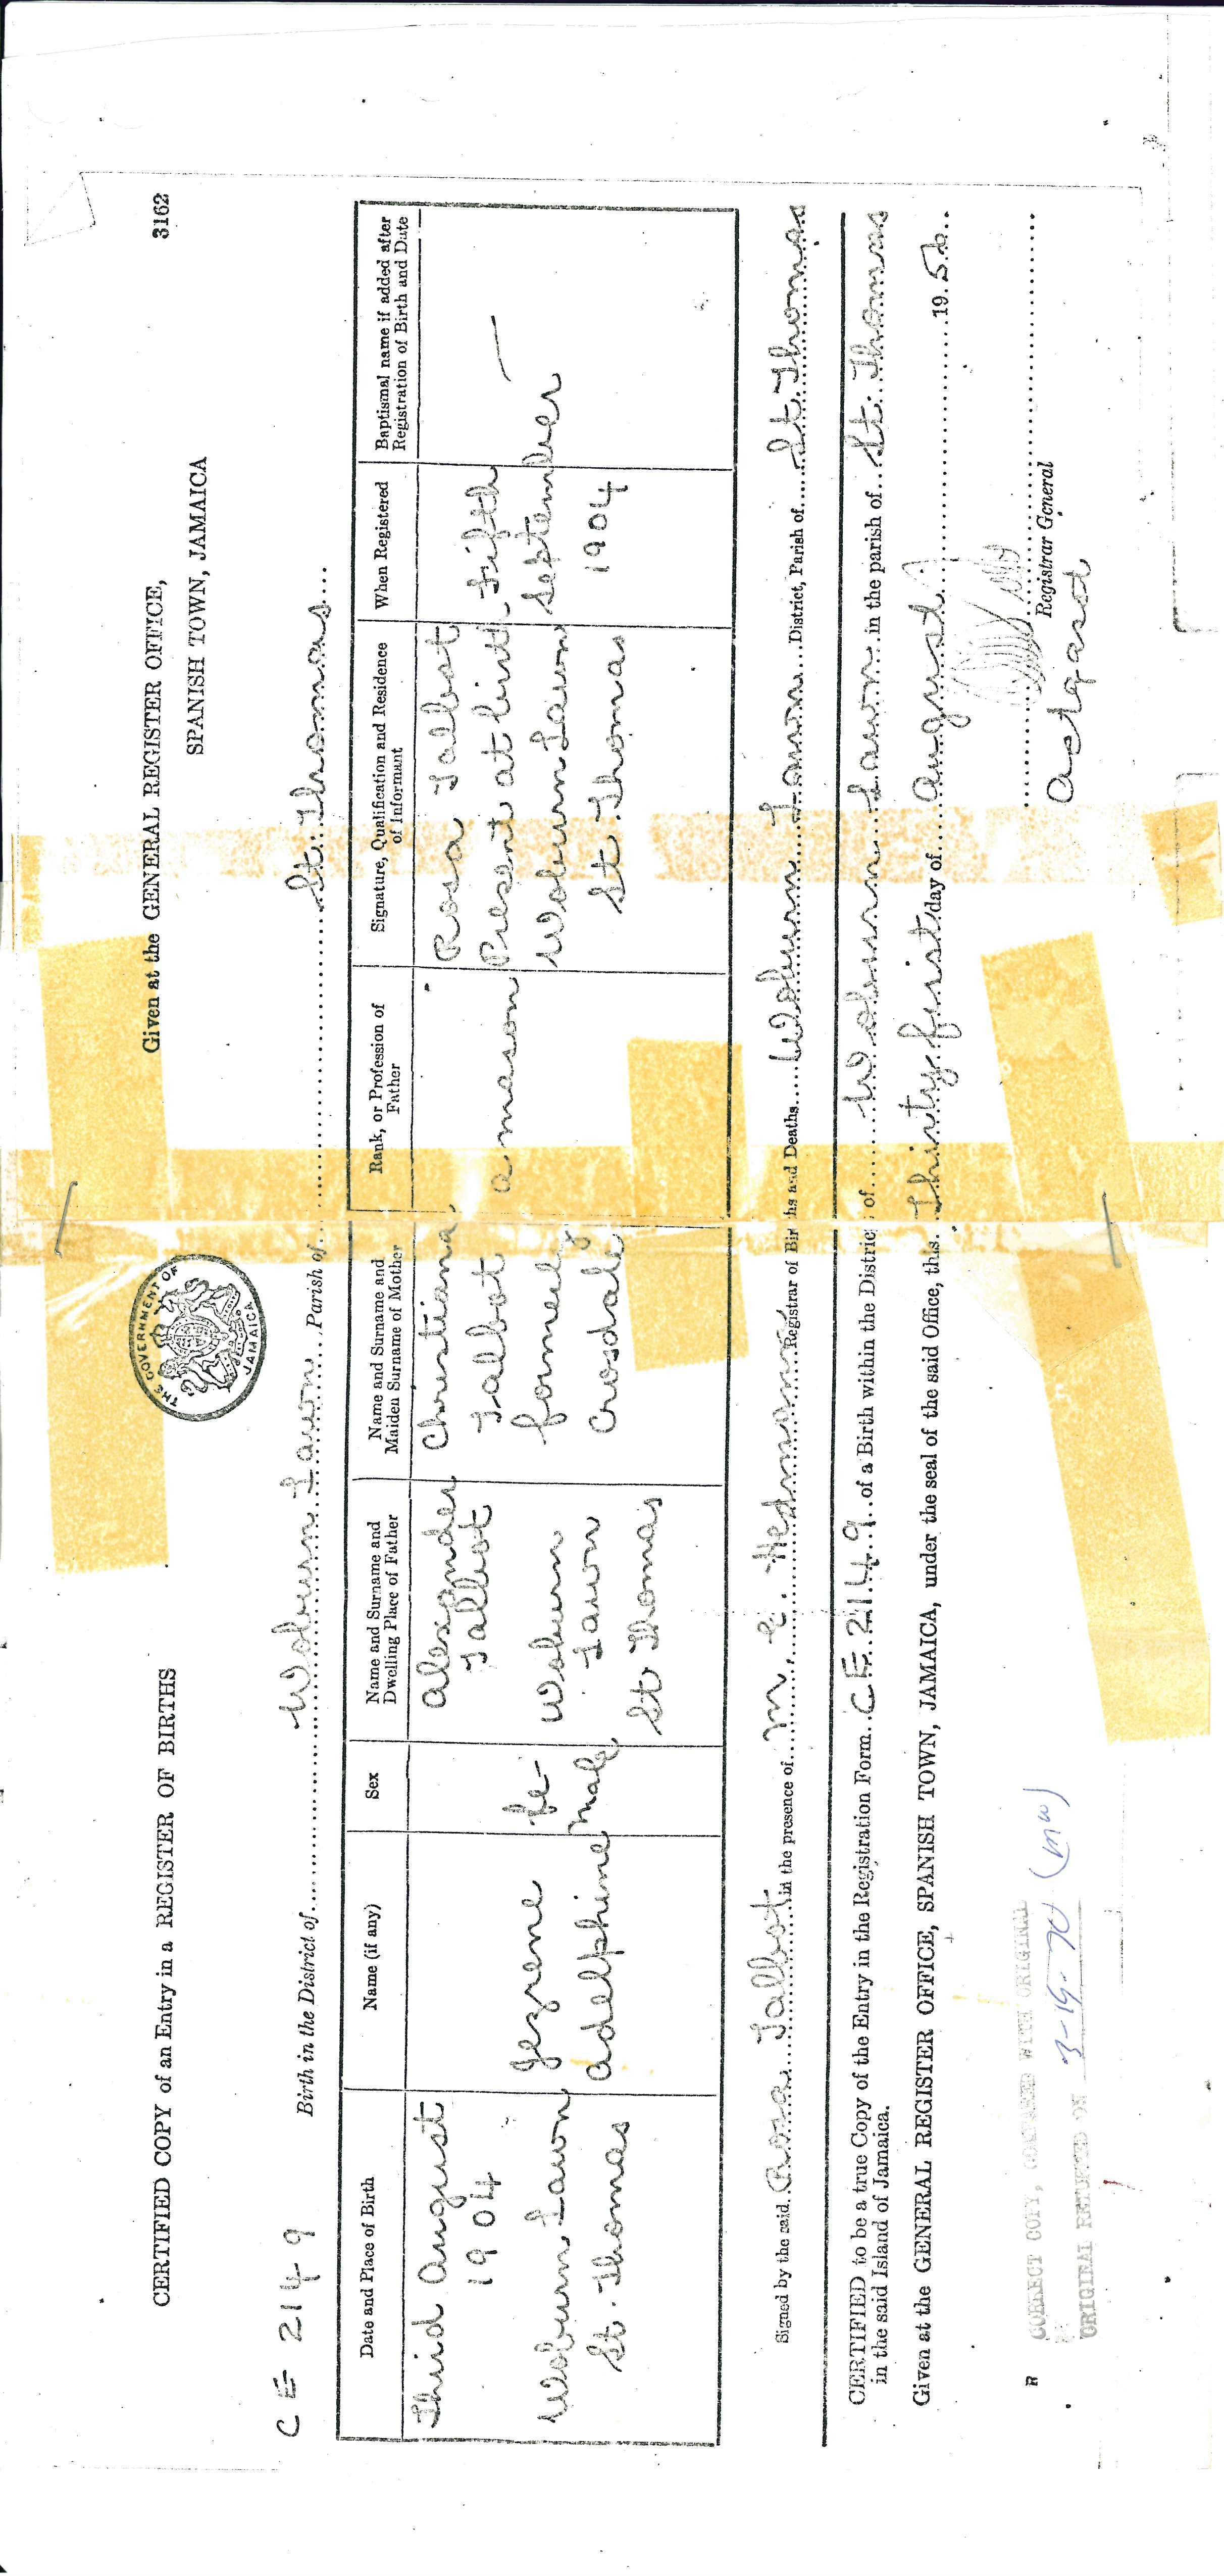 CERTIFIED COPY of an Entry in a REGISTER OF BIRTHS
Given at the GENERAL REGISTER OFFICE,
SPANISH TOWN, JAMAICA
3162
THE GOVERNMENT OF JAMAICA
CE 2149
Birth in the District of Woburn Lawn Parish of St. Thomas
Date and Place of Birth
Name (if any)
Sex
Name and Surname and Dwelling Place of Father
Name and Surname and Maiden Surname of Mother
Rank, or Profession of Father
Signature, Qualification and Residence of Informant
When Registered
Baptismal name if added after Registration of Birth and Date
Third August
1904
Woburn Lawn
St. Thomas
Jezrene
Adelphine
fe-
male
Alexander
Talbot
Woburn
Lawn
St Thomas
Christiana
Talbot
formerly
Crosdale
a mason
Rosa Talbot
Present at birth
Woburn Lawn
St. Thomas
Fifth
September
1904
—
Signed by the said Rosa Talbot in the presence of M. E. Hedmann Registrar of Births and Deaths Woburn Lawn District, Parish of St Thomas
CERTIFIED to be a true Copy of the Entry in the Registration Form CE 2149 of a Birth within the District of Woburn Lawn in the parish of St. Thomas
in the said Island of Jamaica.
Given at the GENERAL REGISTER OFFICE, SPANISH TOWN, JAMAICA, under the seal of the said Office, this Thirty first day of August 1956
Registrar General
R
CORRECT COPY, COMPARED WITH ORIGINAL
ORIGINAL RETURNED ON 3-19-70 (mw)